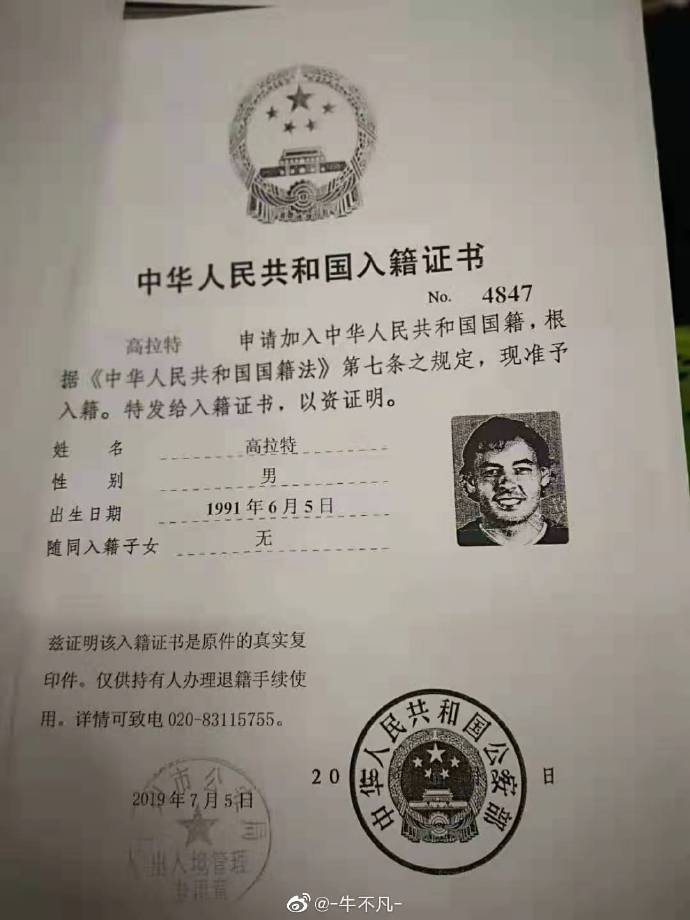 中华人民共和国入籍证书
No. 4847
高拉特 申请加入中华人民共和国国籍，根
据《中华人民共和国国籍法》第七条之规定，现准予
入籍。特发给入籍证书，以资证明。
姓 名 高拉特
性 别 男
出生日期 1991年6月5日
随同入籍子女 无
兹证明该入籍证书是原件的真实复
印件。仅供持有人办理退籍手续使
用。详情可致电 020-83115755。
中华人民共和国公安部
20 日
2019年7月5日
市公 局
出入境管理
专用章
@-牛不凡-